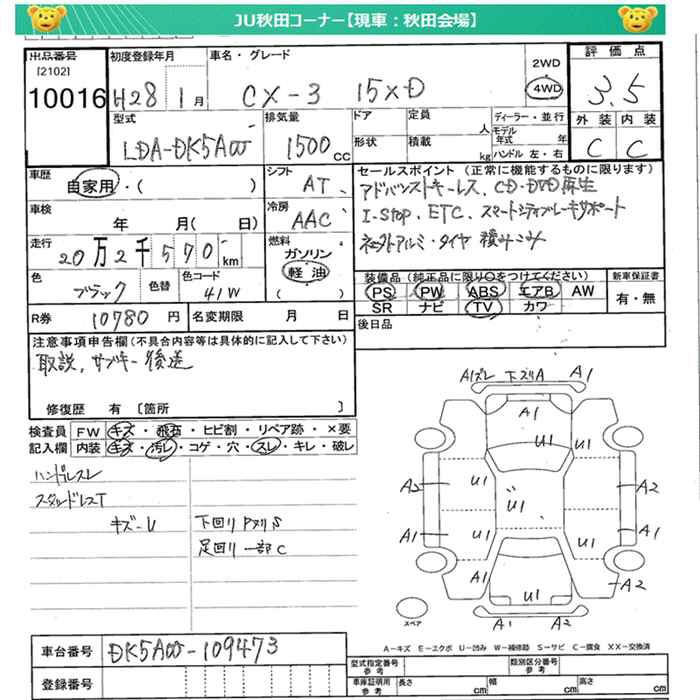 JU秋田コーナー【現車：秋田会場】
出品番号
[2102]
10016
初度登録年月
H28 1月
車名・グレード
CX-3 15XD
2WD
4WD
評価点
3.5
外装 内装
C C
型式
LDA-DK5AW
排気量
1500cc
ドア
形状
定員
人
積載
kg
ディーラー・並行
モデル年式 年
ハンドル 左・右
車歴
自家用・( )
シフト
AT
セールスポイント (正常に機能するものに限ります)
アドバンストキーレス、CD・DVD再生
I-STOP、ETC、スマートシティブレーキサポート
車検
年 月( 日)
冷房
AAC
走行
20万2千570km
燃料
ガソリン
軽油
( )
色
ブラック
色替
色コード
41W
装備品 (純正品に限り○をつけてください)
PS PW ABS エアB AW
SR ナビ TV カワ
新車保証書
有・無
R券
10780円
名変期限 月 日
後日品
注意事項申告欄 (不具合内容等は具体的に記入して下さい)
取説、サブキー後送
修復歴 有 [箇所 ]
検査員記入欄
FW キズ・飛石・ヒビ割・リペア跡・×要
内装 キズ・汚レ・コゲ・穴・スレ・キレ・破レ
ハンドルスレ
キズ-U
下回りPヌリS
足回り一部C
A1ズレ 下ズリA A1
A1
U1
U1
A2
U1
U1
A2
A1
U1
U1
A1
A1
U1
A2
A1 A2
スペア
A－キズ E－エクボ U－凹み W－補修跡 S－サビ C－腐食 XX－交換済
車台番号
DK5AW-109473
登録番号
型式指定番号
参考
類別区分番号
参考
車庫証明用
参考
長さ cm
幅 cm
高さ cm